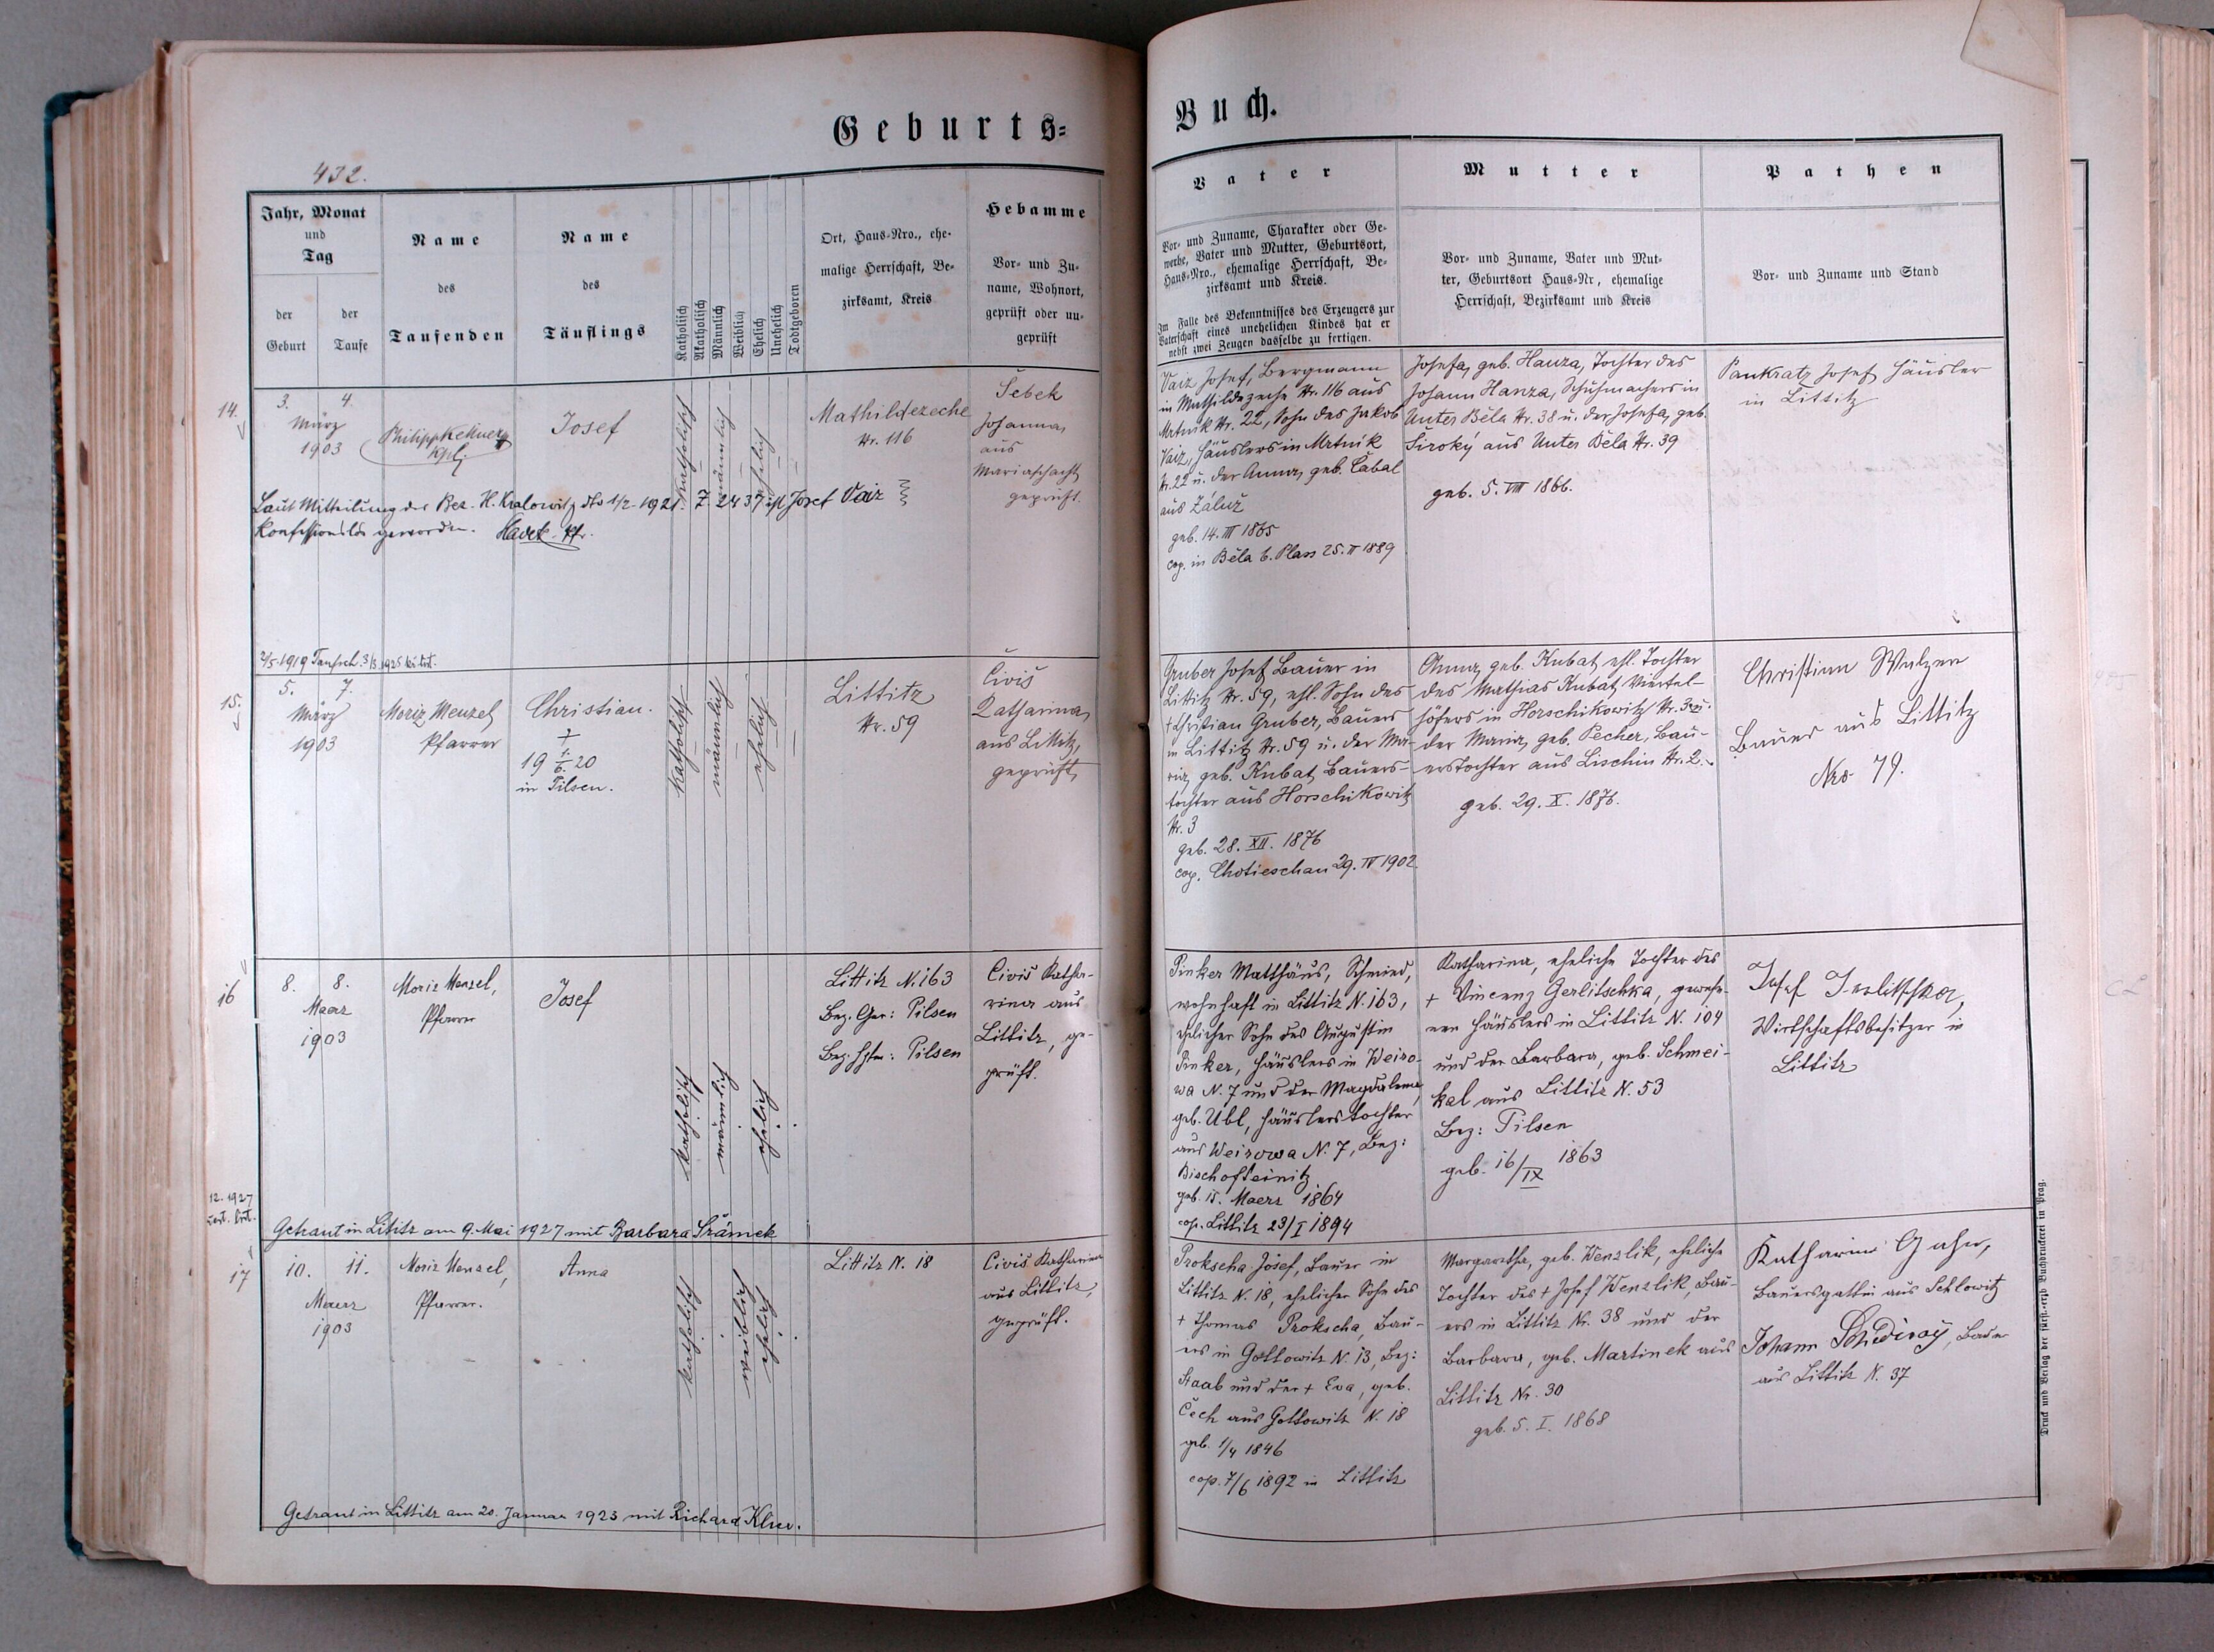 Geburts=
Buch.
432.
Jahr, Monat
und
Tag
der
Geburt
der
Taufe
Name
des
Taufenden
Name
des
Täuflings
Katholisch
Akatholisch
Männlich
Weiblich
Ehelich
Unehelich
Todtgeboren
Ort, Haus-Nro., ehe-
malige Herrschaft, Be-
zirksamt, Kreis
Hebamme
Vor- und Zu-
name, Wohnort,
geprüft oder un-
geprüft
Vater
Vor- und Zuname, Charakter oder Ge-
werbe, Vater und Mutter, Geburtsort,
Haus-Nro., ehemalige Herrschaft, Be-
zirksamt und Kreis.
Im Falle des Bekenntnisses des Erzeugers zur
Vaterschaft eines unehelichen Kindes hat er
nebst zwei Zeugen dasselbe zu fertigen.
Mutter
Vor- und Zuname, Vater und Mut-
ter, Geburtsort Haus-Nr, ehemalige
Herrschaft, Bezirksamt und Kreis
Pathen
Vor- und Zuname und Stand
14.
3. 4.
März
1903
Philipp
Kpl.
Josef
katholisch
männlich
ehelich
Mathildezeche
Nr. 116
Šebek
Johanna
aus
Mariaschacht
geprüft.
Laut Mitteilung der Bez. H. Kralowitz dto 1/2 1921. Z. 2437 ist Josef Vaiz
konfessionslos geworden.
Vaiz Josef, Bergmann
in Mathildezeche Nr. 116 aus
Mrtnik Nr. 22, Sohn des Jakob
Vaiz, Häuslers in Mrtnik
Nr. 22 u. der Anna, geb. Cabal
aus Záluž
geb. 14. III 1865
cop. in Běla b. Plass 25. II 1889
Josefa, geb. Hanza, Tochter des
Johann Hanza, Schuhmachers in
Unter Běla Nr. 38 u. der Josefa, geb.
Široký aus Unter Běla Nr. 39
geb. 5. VIII 1866.
Pankratz Josef Häusler
in Littitz
2/5 1919 Taufsch. 3/3. 1925
15.
5. 7.
März
1903
Moriz Menzel
Pfarrer
Christian.
†
19 1./6. 20
in Pilsen.
katholisch
männlich
ehelich
Littitz
Nr. 59
Civiš
Katharina,
aus Littitz,
geprüft,
Gruber Josef Bauer in
Littitz Nr. 59, ehl. Sohn des
† Christian Gruber, Bauers
in Littitz Nr. 59 u. der Ma-
ria, geb. Kubat, Bauers-
tochter aus Horschikowitz
Nr. 3
geb. 28. XII. 1876
cop. Chotieschau 29. IV 1902
Anna, geb. Kubat, ehl. Tochter
des Mathias Kubat, Viertel-
höfers in Horschikowitz Nr. 3 u.
der Maria, geb. Pecher, Bau-
erstochter aus Lischin Nr. 2.
geb. 29. X. 1876.
Christian Wulzen
Bauer aus Littitz
Nro 79.
16
8. 8.
Maerz
1903
Moriz Menzel,
Pfarrer
Josef
katholisch
männlich
ehelich
Littitz N. 163
Bez. Ger: Pilsen
Bez. Hptm: Pilsen
Civis Katha-
rina aus
Littitz, ge-
prüft.
12. 1927
Getraut in Littitz am 9. Mai 1927 mit Barbara Šrámek
Pinker Matthäus, Schmied,
wohnhaft in Littitz N. 163,
ehelicher Sohn des Augustin
Pinker, Häuslers in Weiro-
wa N. 7 und der Magdalena,
geb. Übl, Häuslerstochter
aus Weirowa N. 7, Bez:
Bischofteinitz
geb. 15. Maerz 1864
cop. Littitz 23/I 1894
Katharina, eheliche Tochter des
† Vincenz Gerlitschka, gewese-
nen Häuslers in Littitz N. 104
und der Barbara, geb. Schmei-
kal aus Littitz N. 53
Bez: Pilsen
geb. 16/IX 1863
Josef Jerlitschka,
Wirtschaftsbesitzer in
Littitz
17
10. 11.
Maerz
1903
Moriz Menzel,
Pfarrer.
Anna
katholisch
weiblich
ehelich
Littitz N. 18
Civis Katharina
aus Littitz,
geprüft.
Getraut in Littitz am 20. Januar 1923 mit Richard
Prokscha Josef, Bauer in
Littitz N. 18, ehelicher Sohn des
† Thomas Prokscha, Bau-
ers in Gottowitz N. 13, Bez:
Staab und der † Eva, geb.
Čech aus Gottowitz N. 18
geb. 1/4 1846
cop. 7/6 1892 in Littitz
Margaretha, geb. Wenzlik, eheliche
Tochter des † Josef Wenzlik, Bau-
ers in Littitz Nr. 38 und der
Barbara, geb. Martinek aus
Littitz Nr. 30
geb. 5. I. 1868
Katharina
Bauersgattin aus Schlowitz
Johann Schediwy, Bauer
aus Littitz N. 37
Druck und Verlag der fürst.-erzb Buchdruckerei in Prag.